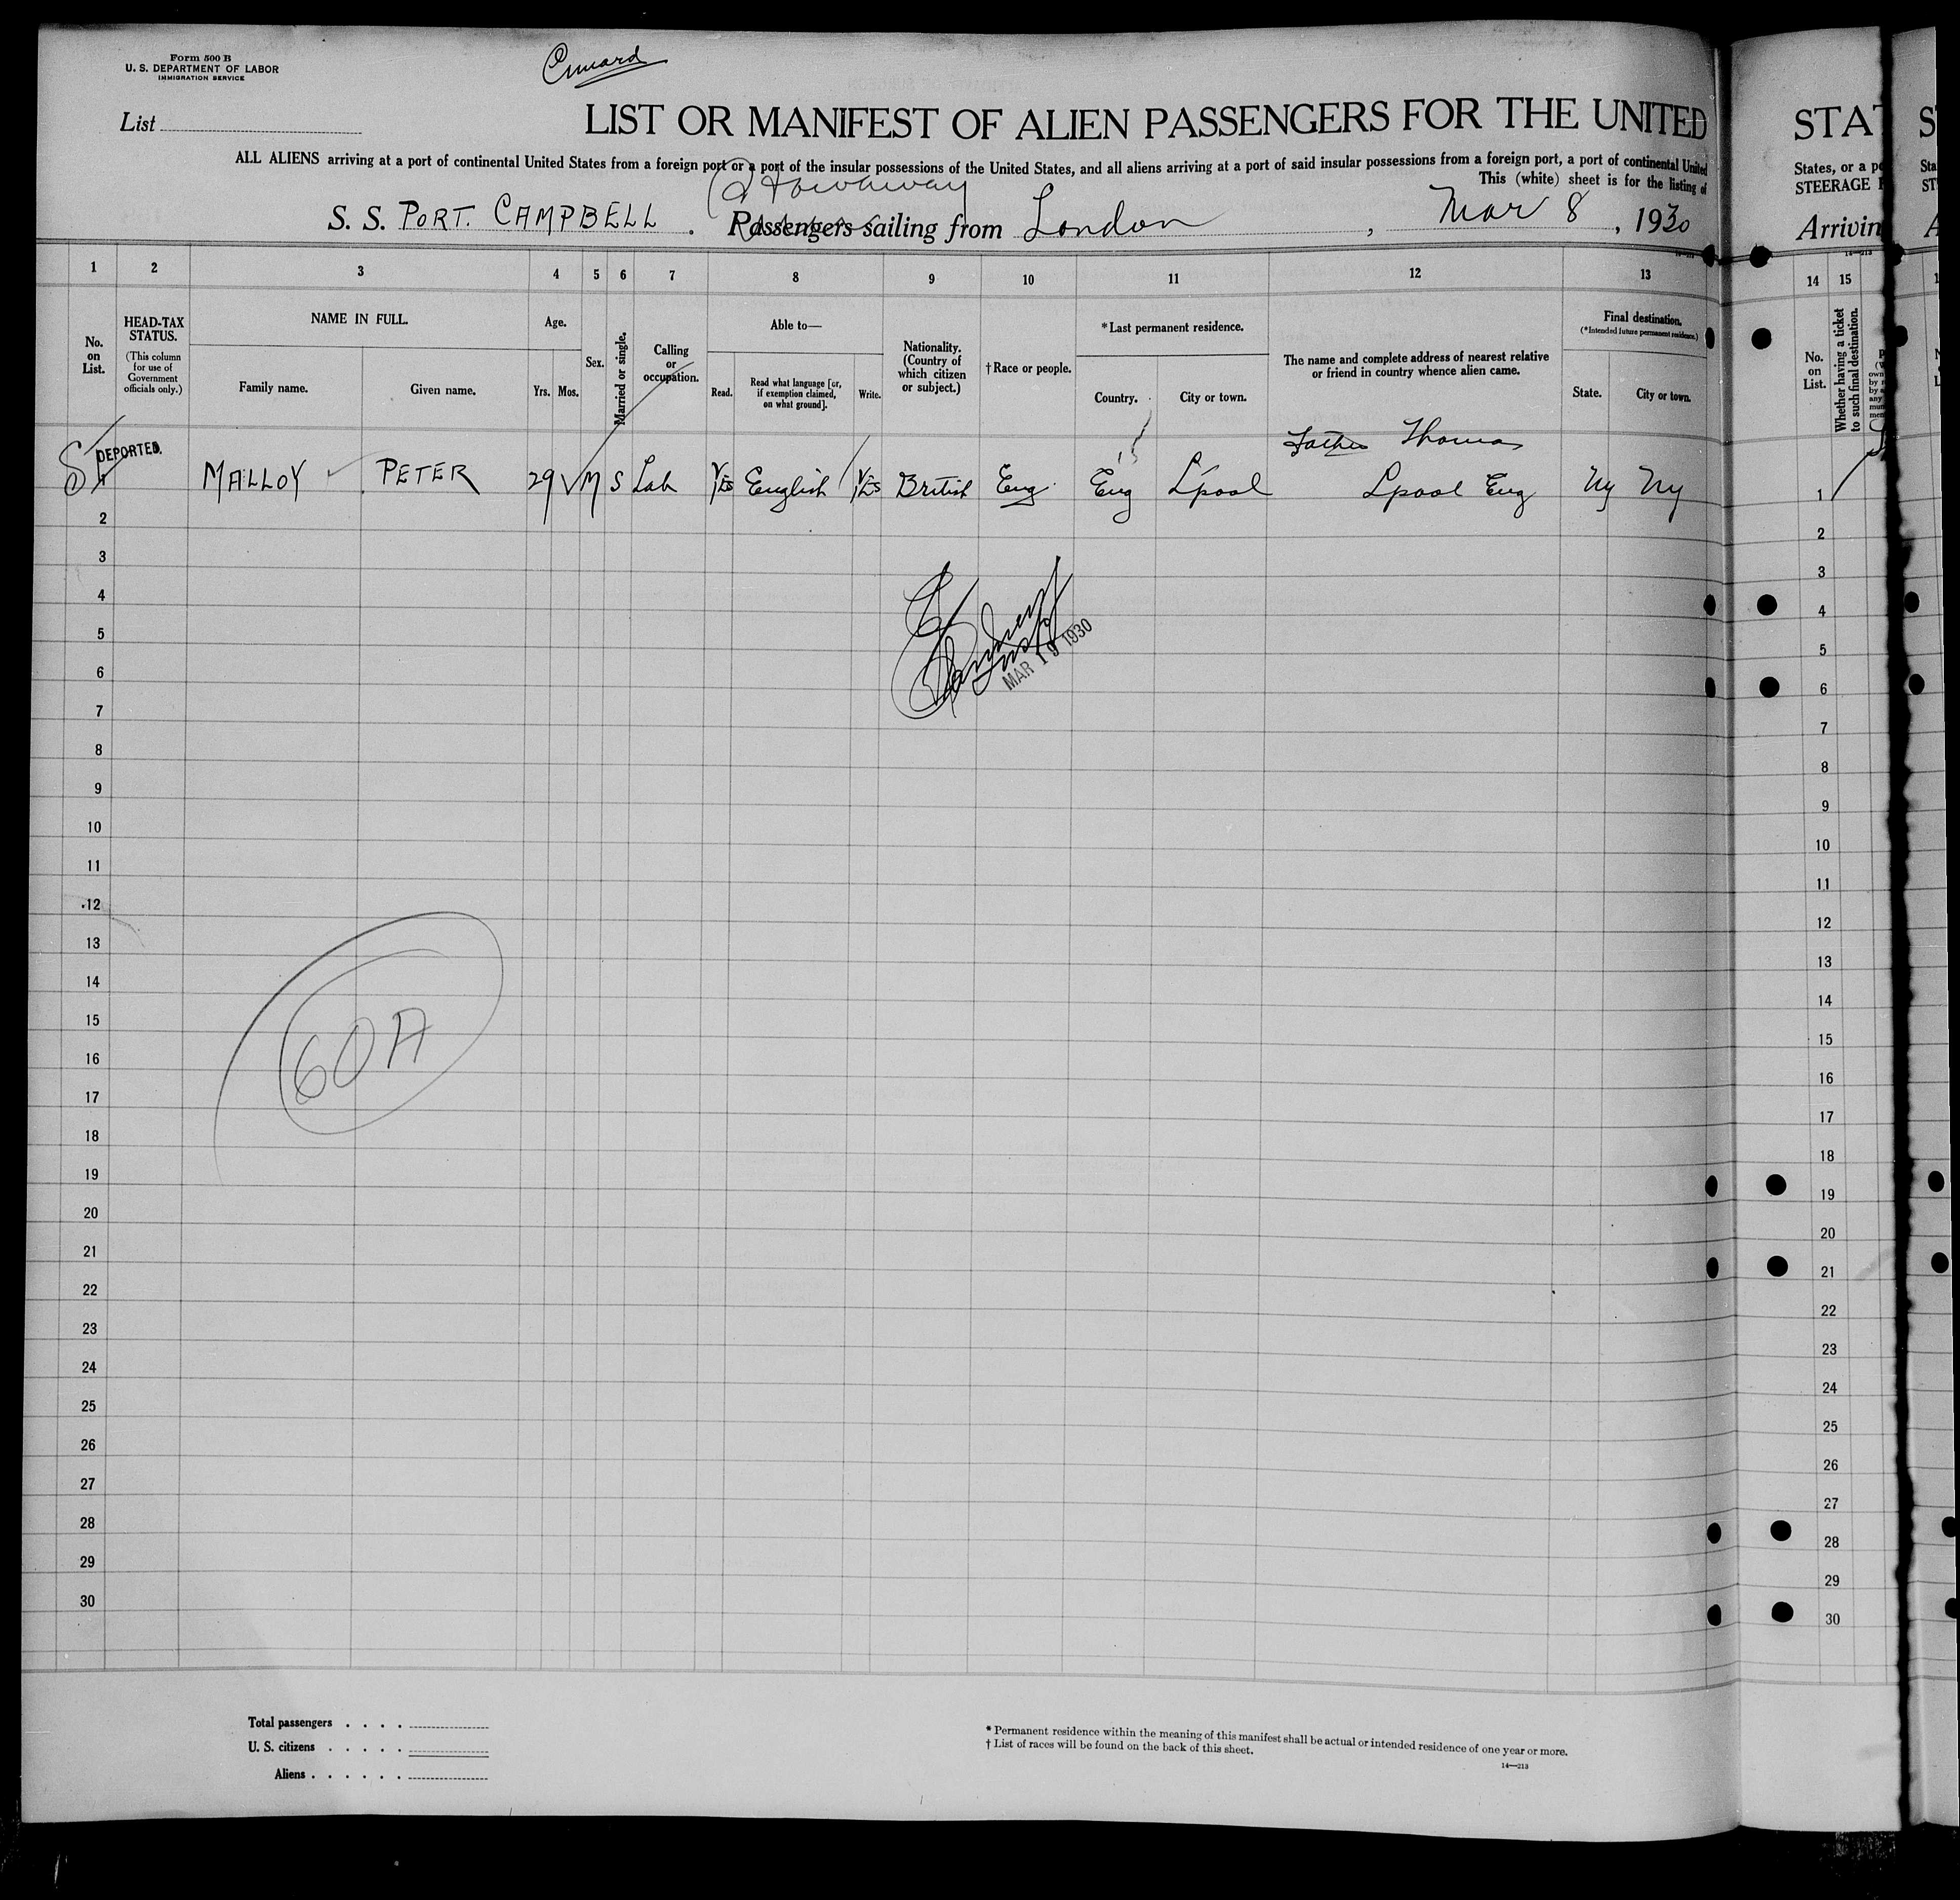 Form 500 B
U. S. DEPARTMENT OF LABOR
IMMIGRATION SERVICE
Cunard
List
LIST OR MANIFEST OF ALIEN PASSENGERS FOR THE UNITED
ALL ALIENS arriving at a port of continental United States from a foreign port or a port of the insular possessions of the United States, and all aliens arriving at a port of said insular possessions from a foreign port, a port of continental United
This (white) sheet is for the listing of
Stowaway
S. S. PORT. CAMPBELL . Passengers sailing from London , Mar 8 , 1930
1 2 3 4 5 6 7 8 9 10 11 12 13
No. on List.
HEAD-TAX STATUS.
(This column for use of Government officials only.)
NAME IN FULL.
Family name. Given name.
Age.
Yrs. Mos.
Sex.
Married or single.
Calling or occupation.
Able to—
Read. Read what language [or, if exemption claimed, on what ground]. Write.
Nationality. (Country of which citizen or subject.)
†Race or people.
*Last permanent residence.
Country. City or town.
The name and complete address of nearest relative or friend in country whence alien came.
Final destination.
(*Intended future permanent residence.)
State. City or town.
DEPORTED.
Father Thomas
MAiLLOY PETER 29 M S Lab Yes English Yes British Eng. Eng L'pool Lpool Eng Ny Ny
2
3
4
5
6
MAR 19 1930
7
8
9
10
11
12
13
14
15
60A
16
17
18
19
20
21
22
23
24
25
26
27
28
29
30
Total passengers
U. S. citizens
Aliens
* Permanent residence within the meaning of this manifest shall be actual or intended residence of one year or more.
† List of races will be found on the back of this sheet.
14—213
STAT
States, or a po
STEERAGE
Arrivin
14—213
14 15
No. on List.
Whether having a ticket to such final destination.
1
2
3
4
5
6
7
8
9
10
11
12
13
14
15
16
17
18
19
20
21
22
23
24
25
26
27
28
29
30